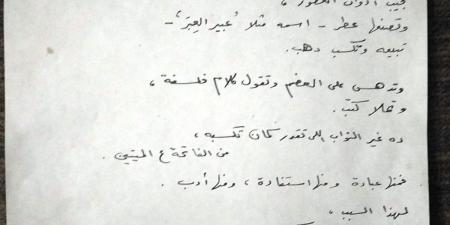 وتصنعها عطر - اسمه مثلا "عبير العِبَر" -
تبيعه وتكسب دهب.
وتدهس على العضم وتقول كلام فلسفة،
وتملا كتب.
ده غير الثواب اللي تقدر كمان تكسبه،
من الفاتحة ع الميتين.
فمنها عبادة ومنها استفادة، ومنها أدب.
لهذا السبب،